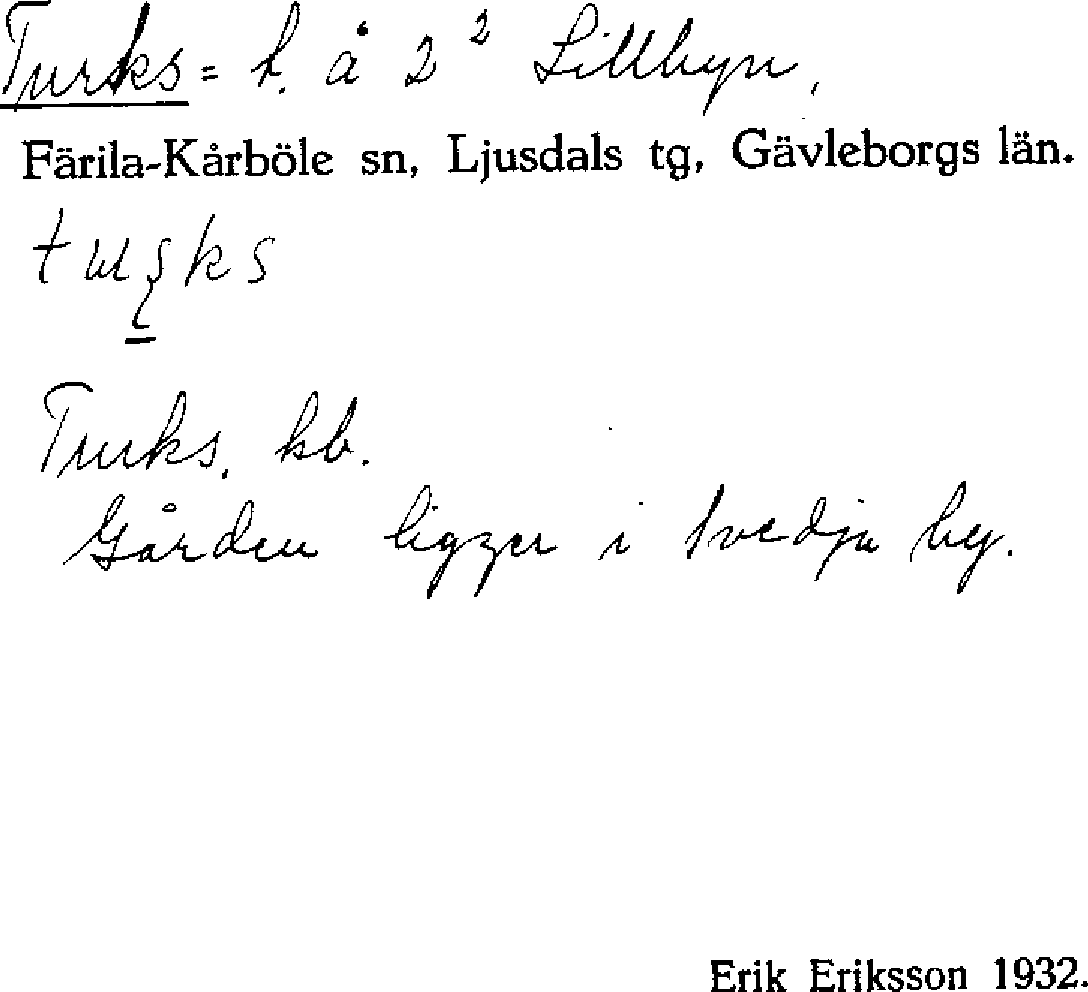 Turks = h. å 2² Lillbyn,
Färila-Kårböle sn, Ljusdals tg, Gävleborgs län.
Turks, kb.
Gården ligger i Svedja by.
Erik Eriksson 1932.